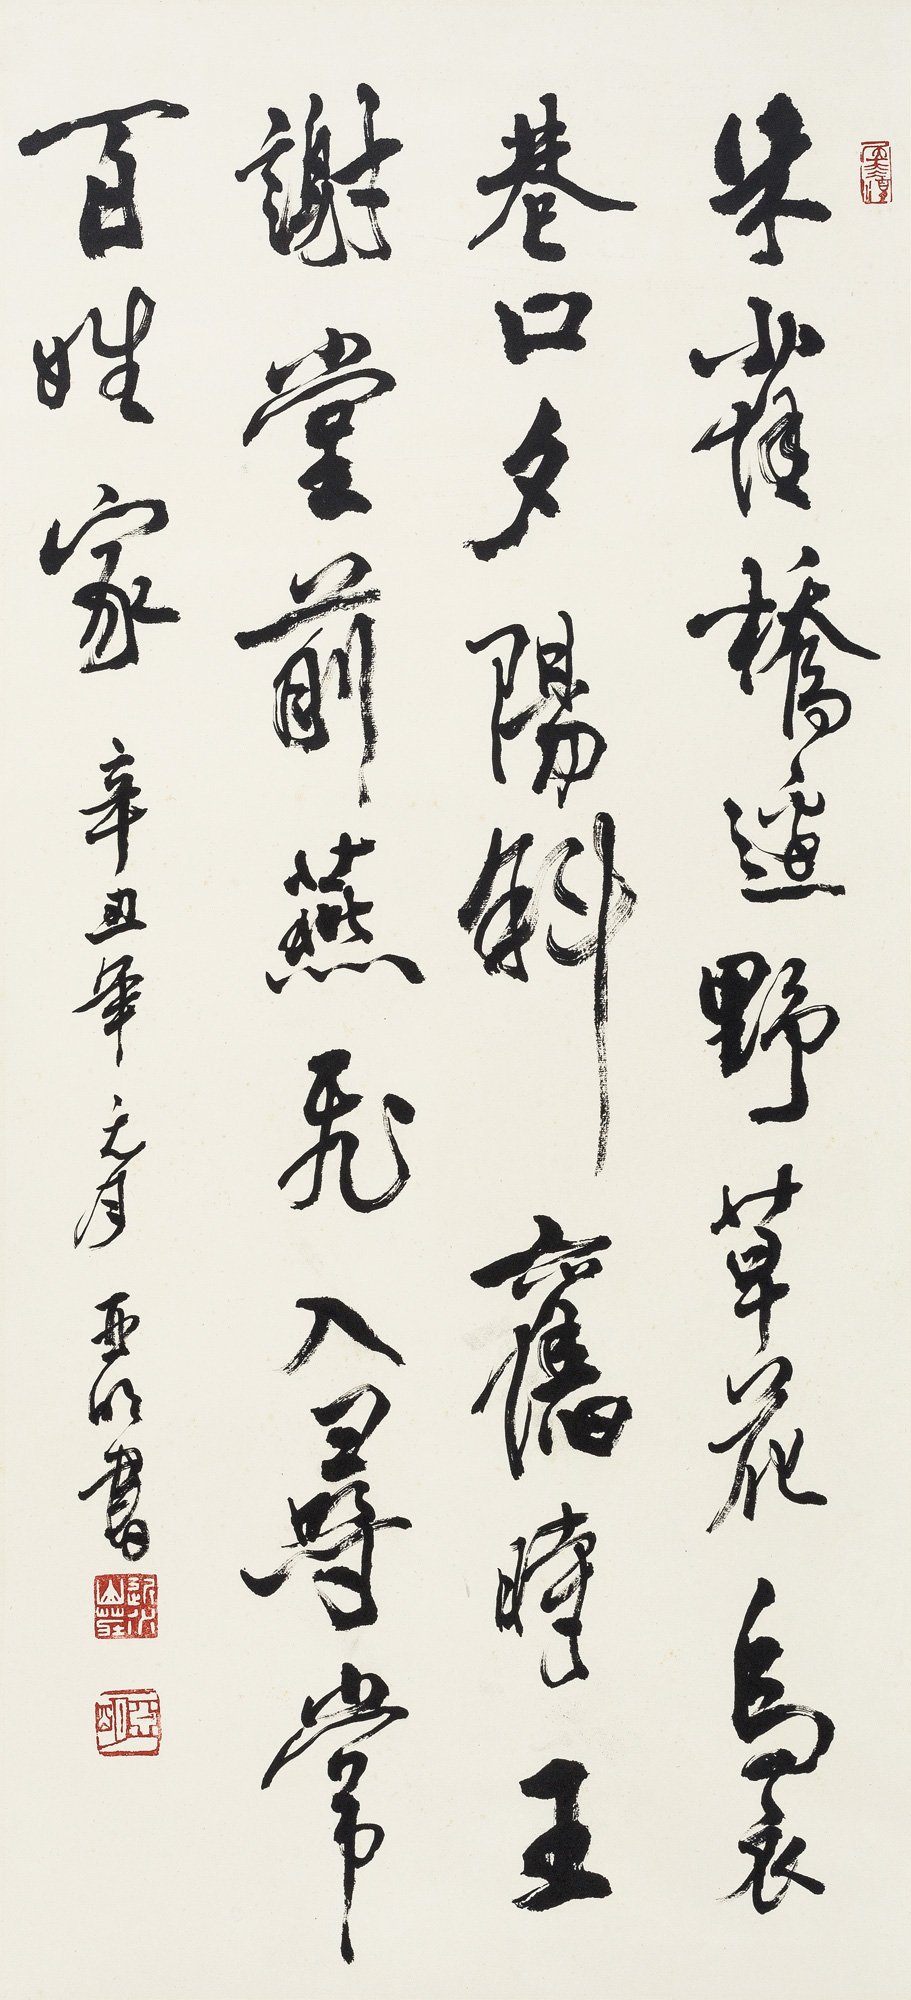 朱雀橋邊野草花烏衣
巷口夕陽斜舊時王
謝堂前燕飛入尋常
百姓家
辛丑年元月亞明書